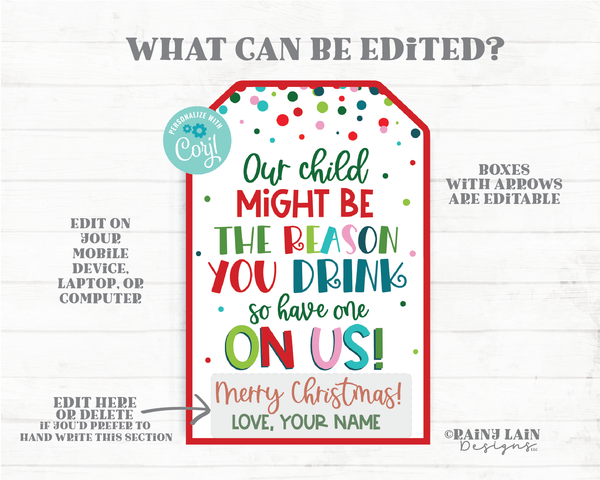 WHAT CAN BE EDITED?
PERSONALIZE WITH
Corjl
Our child
MiGHT BE
THE REASON
YOU DRINK
so have one
ON US!
Merry Christmas!
LOVE, YOUR NAME
BOXES
WITH ARROWS
ARE EDITABLE
EDIT ON
YOUR
MOBILE
DEVICE,
LAPTOP, OR
COMPUTER
EDIT HERE
OR DELETE
IF YOU'D PREFER TO
HAND WRITE THIS SECTION
©RAINY LAIN
Designs LLC